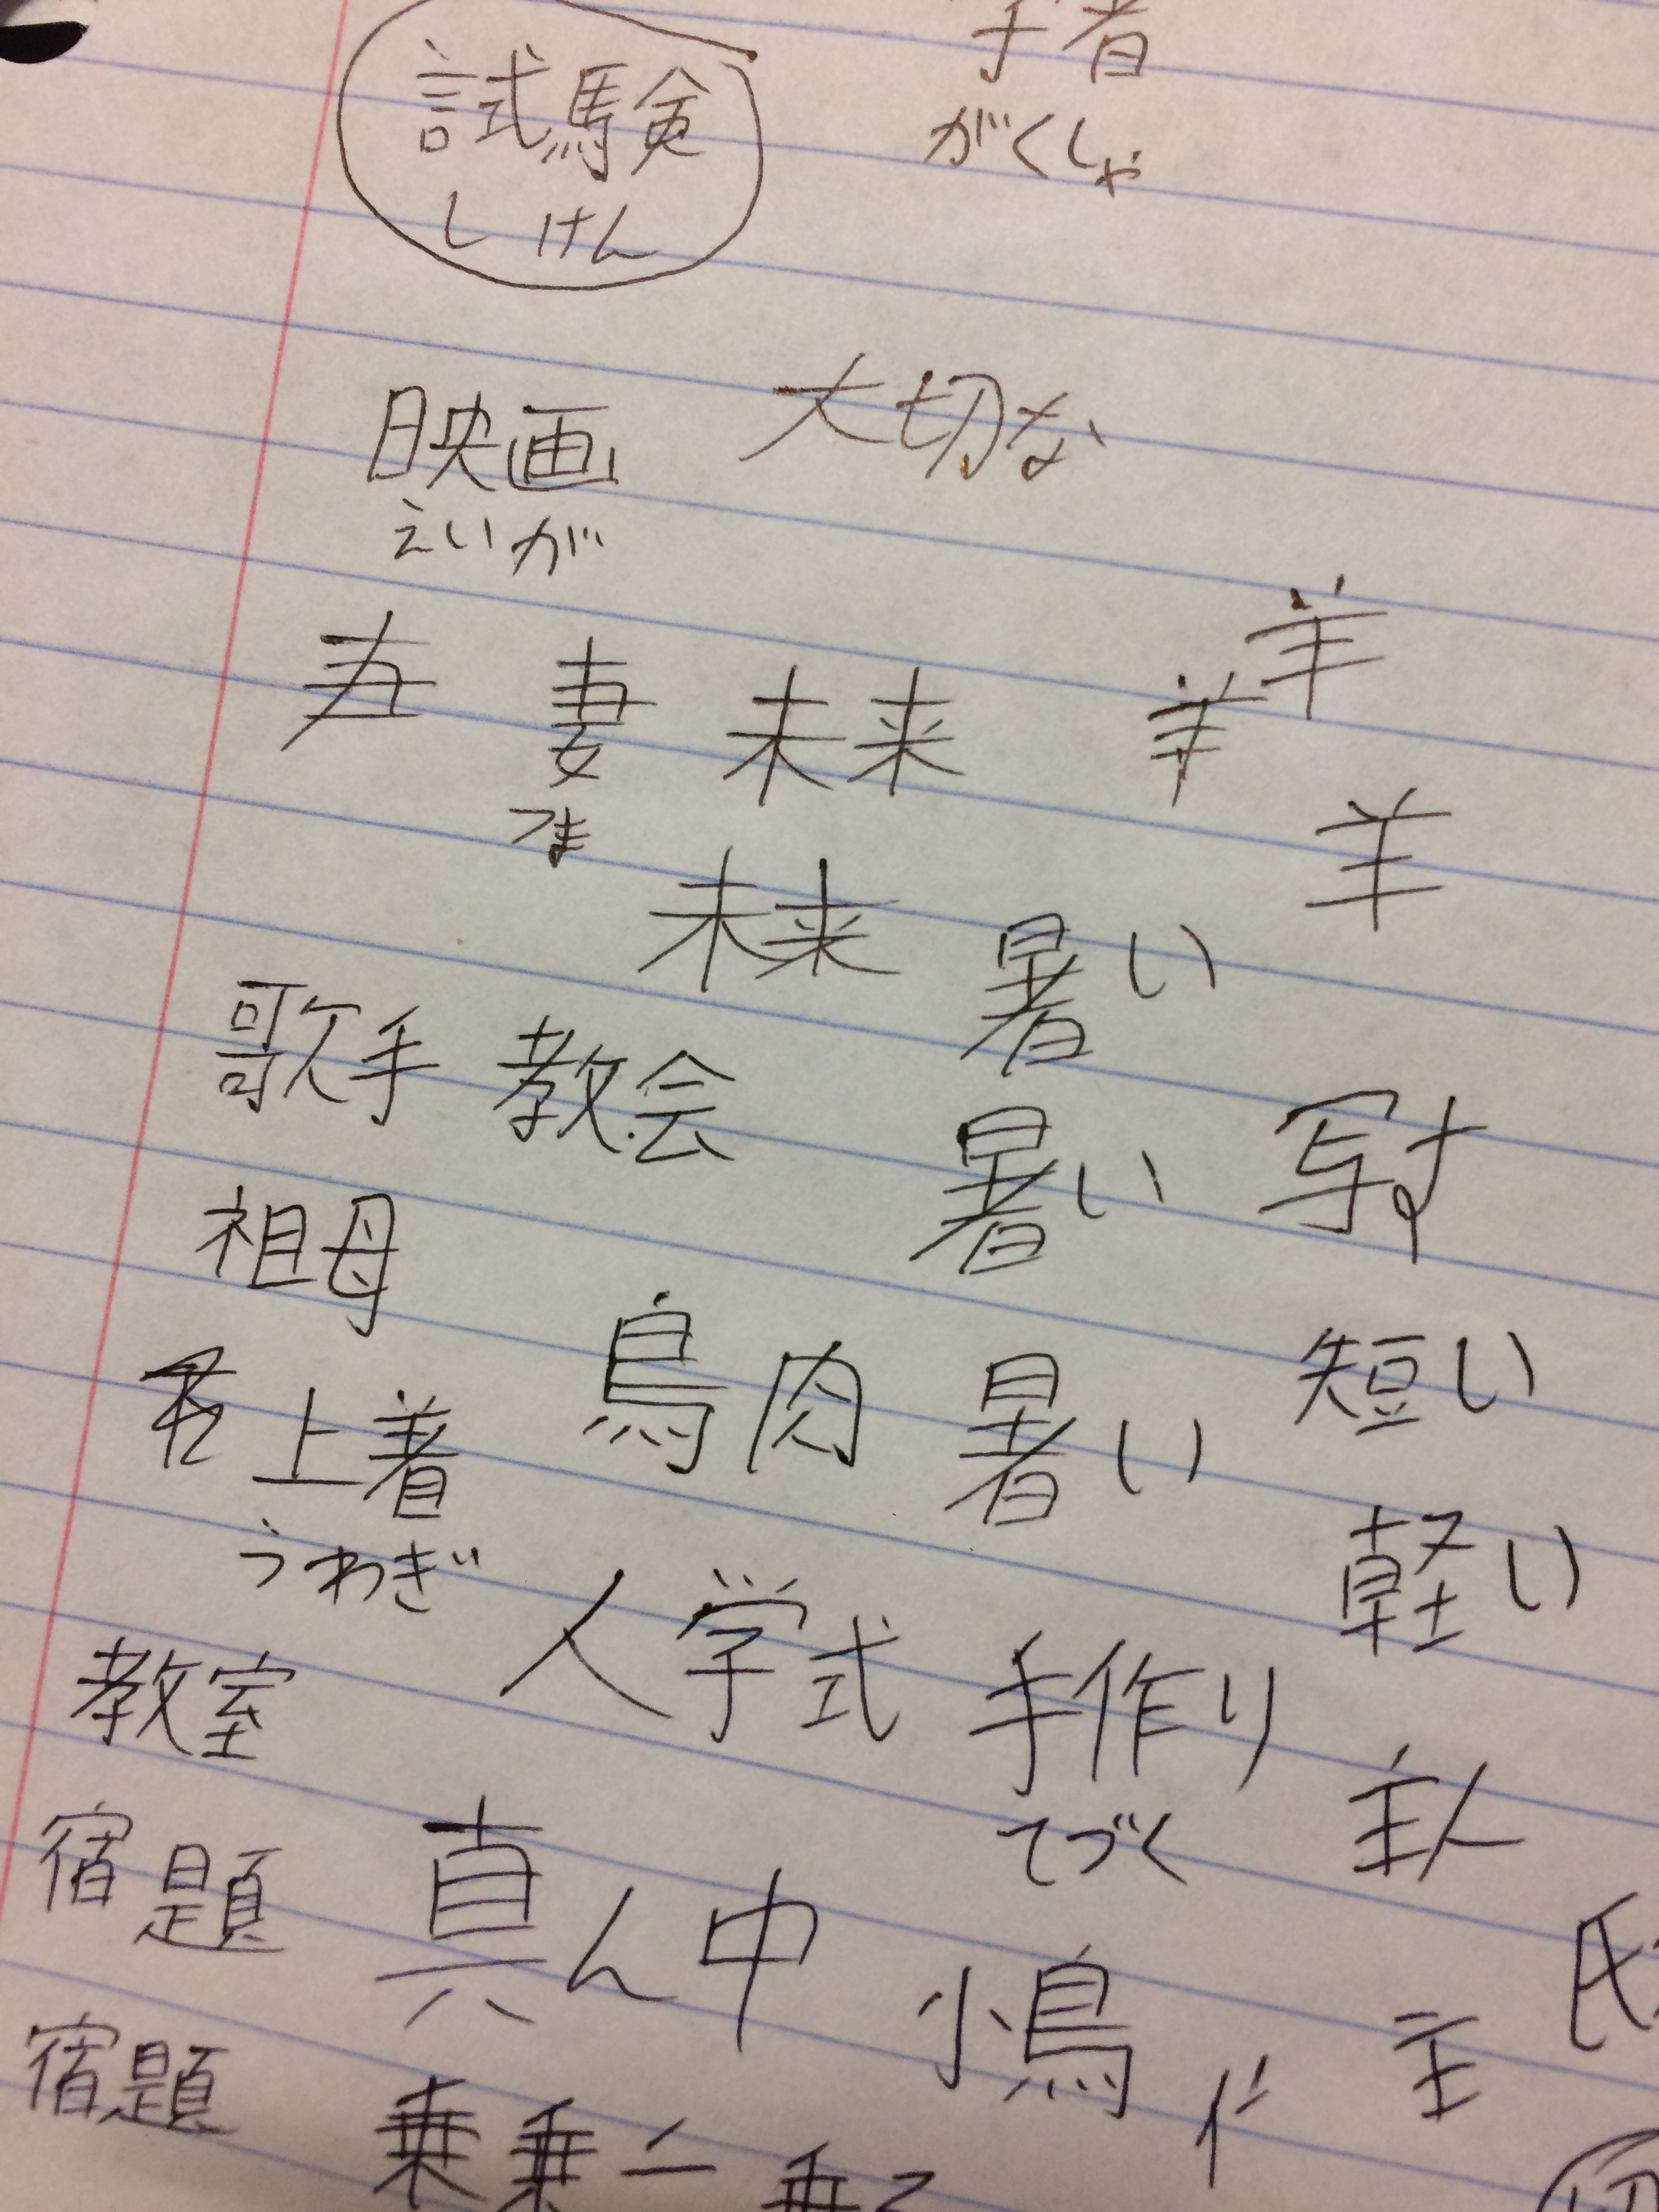 学者
試験
がくしゃ
しけん
映画 大切な
えいが
妻 未来 羊
つま
羊
未来 暑い
歌手 教会
暑い 写す
祖母
鳥肉 暑い 短い
上着
うわぎ
軽い
入学式 手作り
教室
てづく
主人
宿題 真ん中
小鳥
主
宿題
乗 乗